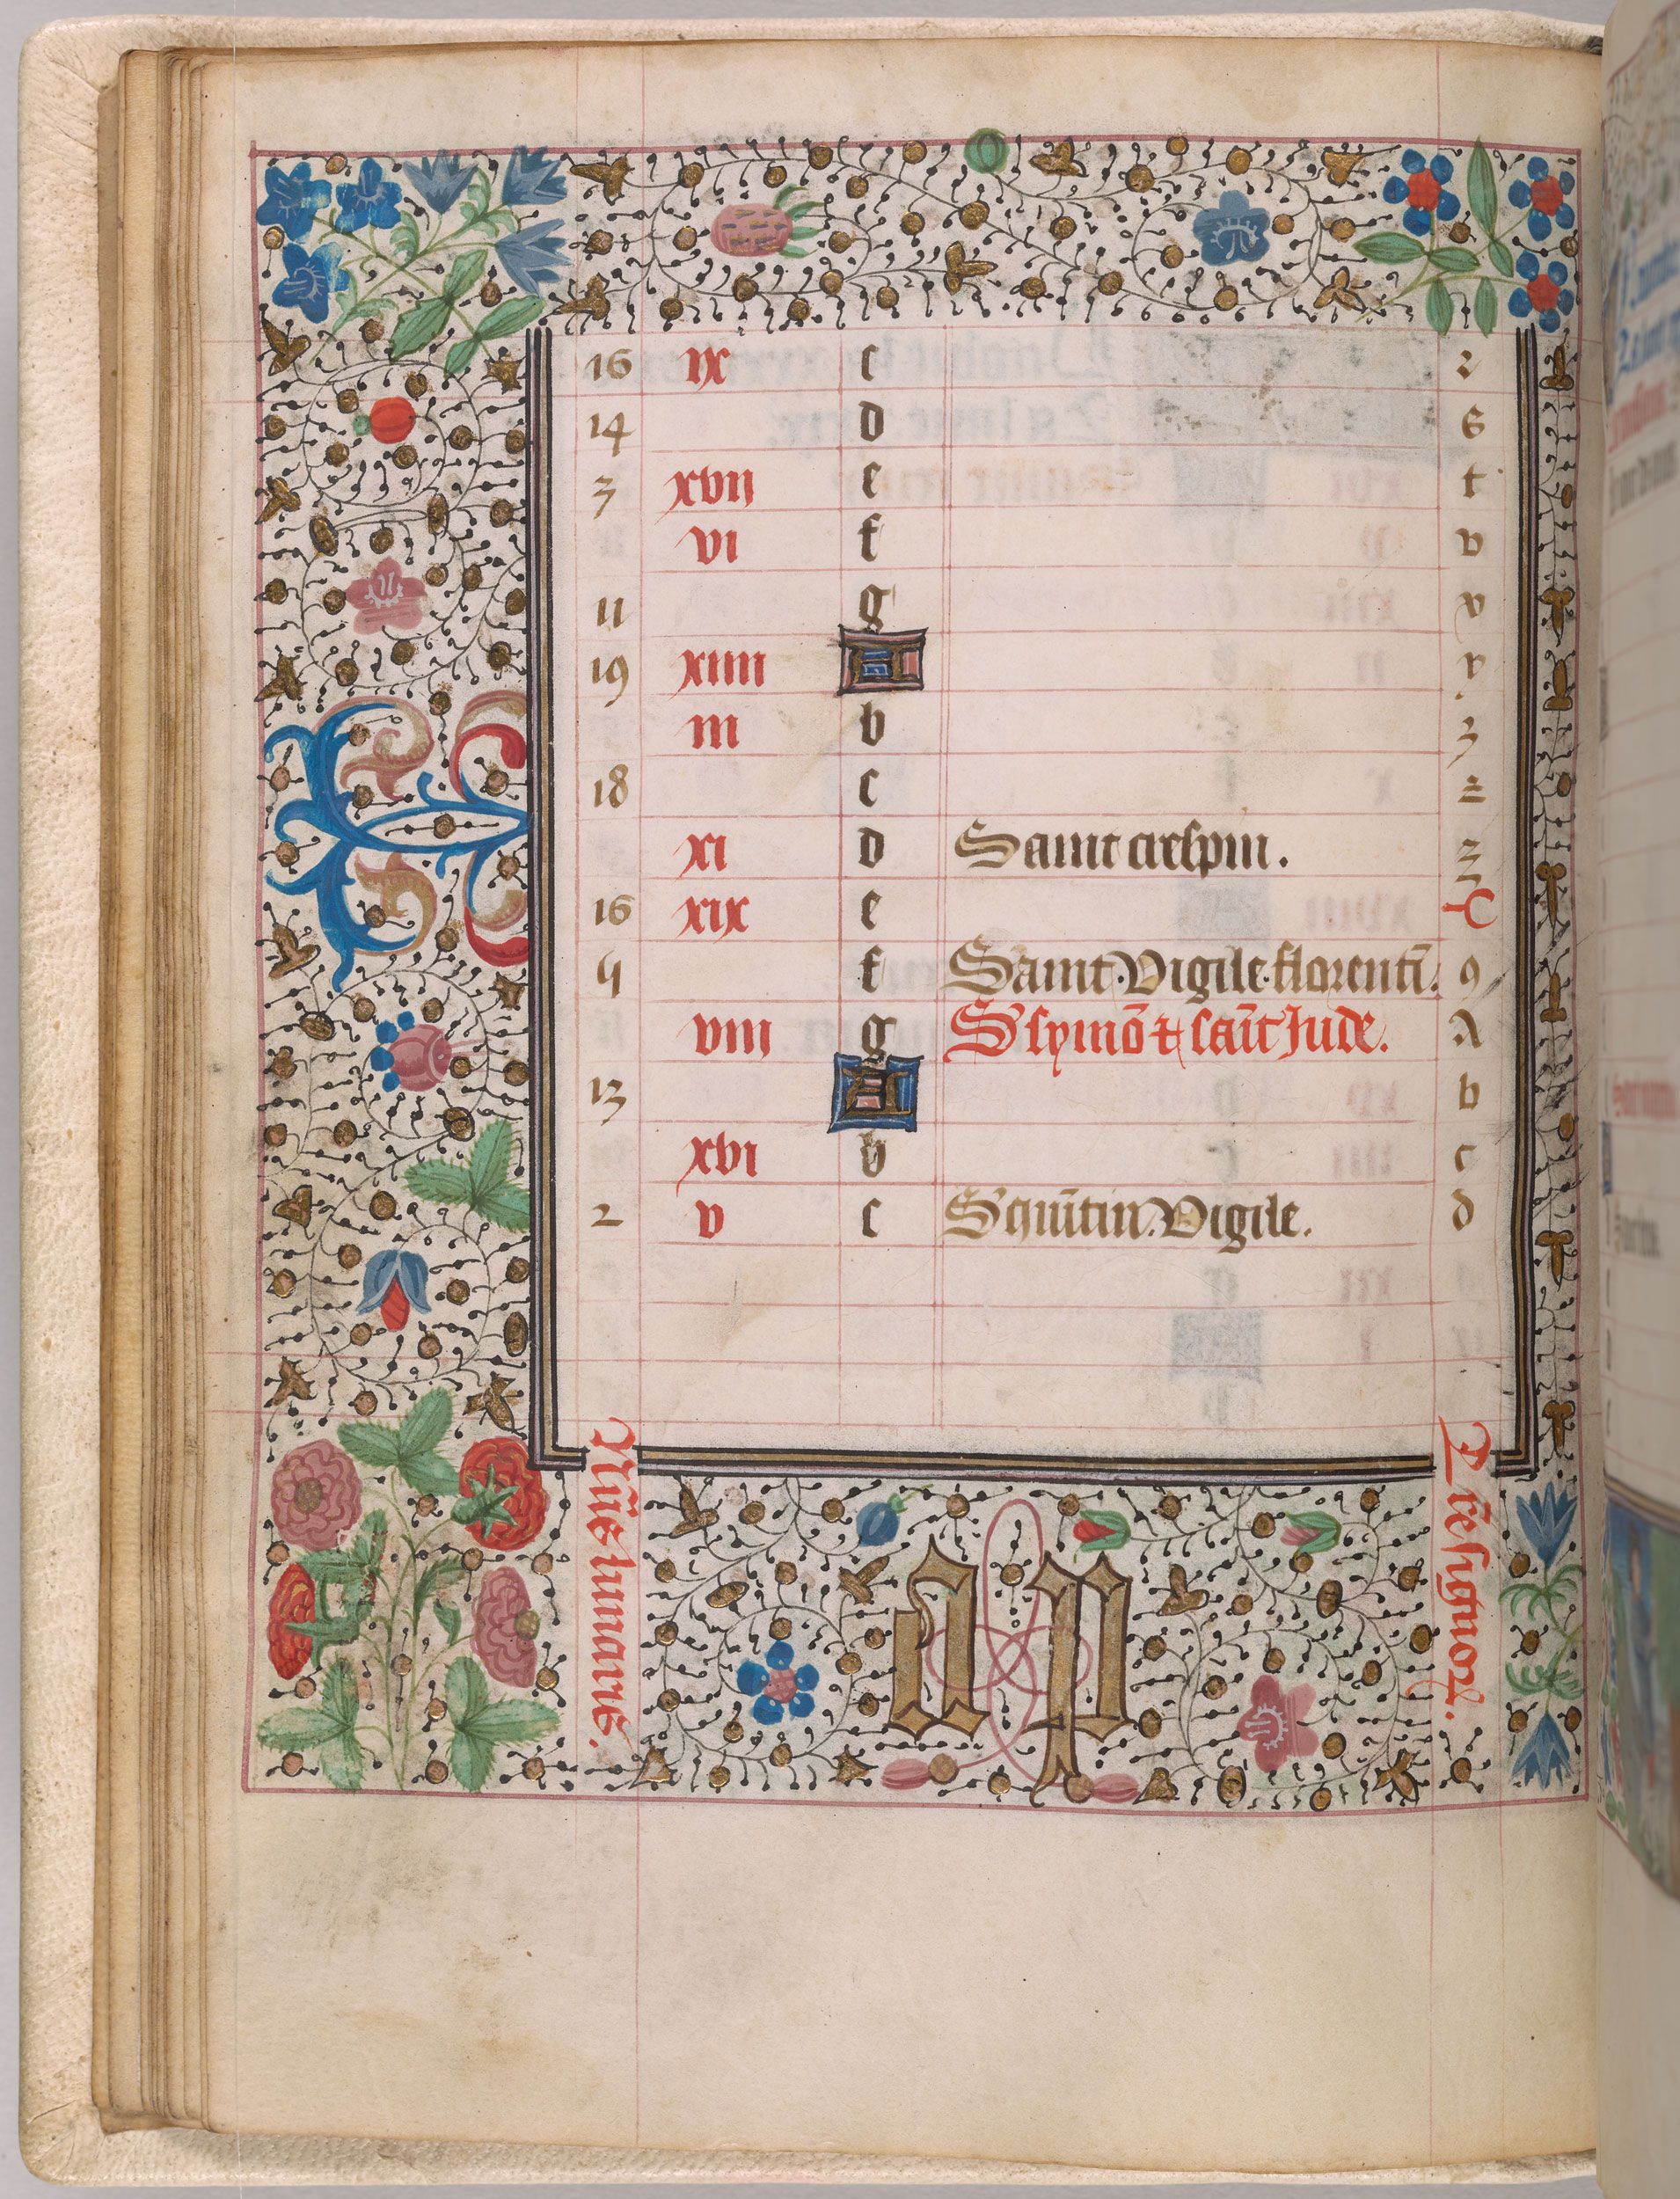 16 ix c
14 d 6
3 xvii e t
vi f v
11 g v
19 xiiii A y
iii b z
18 c
xi d Saint crespin.
16 xix e
4 f Saint. Vigile. florentī. 9
viii g S symō & saīt Jude. A
13 A b
xvi b c
2 v c S quītin. Vigile. d
Nūs lunaris.